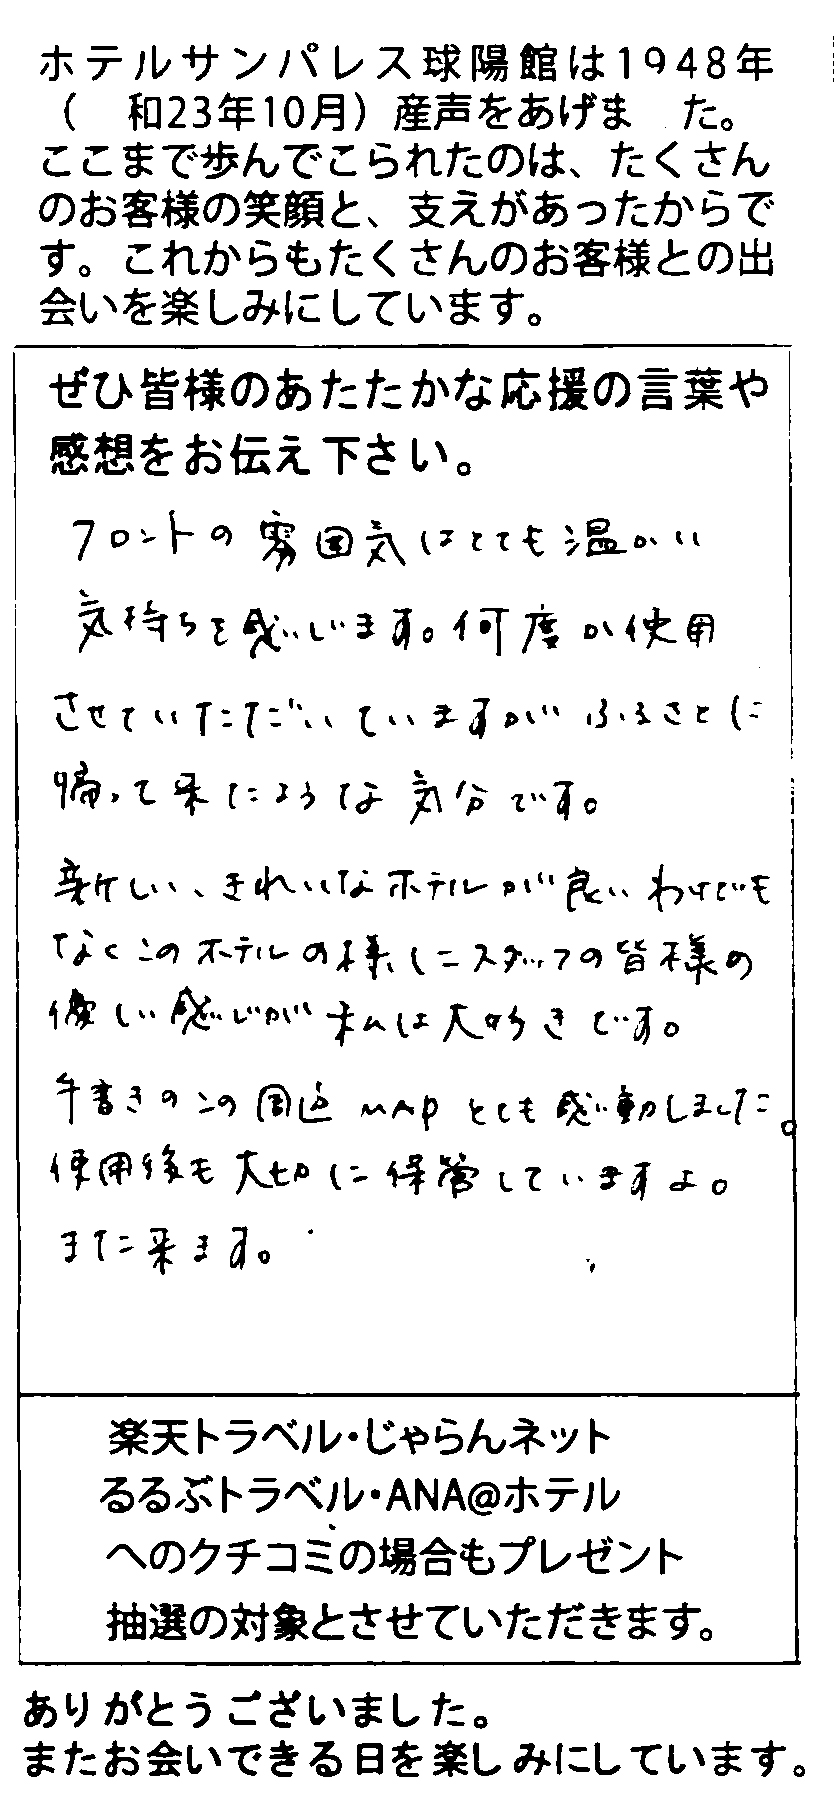 ホテルサンパレス球陽館は1948年
(　和23年10月)産声をあげま　た。
ここまで歩んでこられたのは、たくさん
のお客様の笑顔と、支えがあったからで
す。これからもたくさんのお客様との出
会いを楽しみにしています。
ぜひ皆様のあたたかな応援の言葉や
感想をお伝え下さい。
フロントの雰囲気はとても温かい
気持ちを感じます。何度か使用
させていただいていますが ふるさとに
帰って来たような気分です。
新しい、きれいなホテルが良いわけでも
なくこのホテルの様にスタッフの皆様の
優しい感じが私は大好きです。
手書きのこの周辺 MAP とても感動しました。
使用後も大切に保管していますよ。
また来ます。
楽天トラベル・じゃらんネット
るるぶトラベル・ANA@ホテル
へのクチコミの場合もプレゼント
抽選の対象とさせていただきます。
ありがとうございました。
またお会いできる日を楽しみにしています。